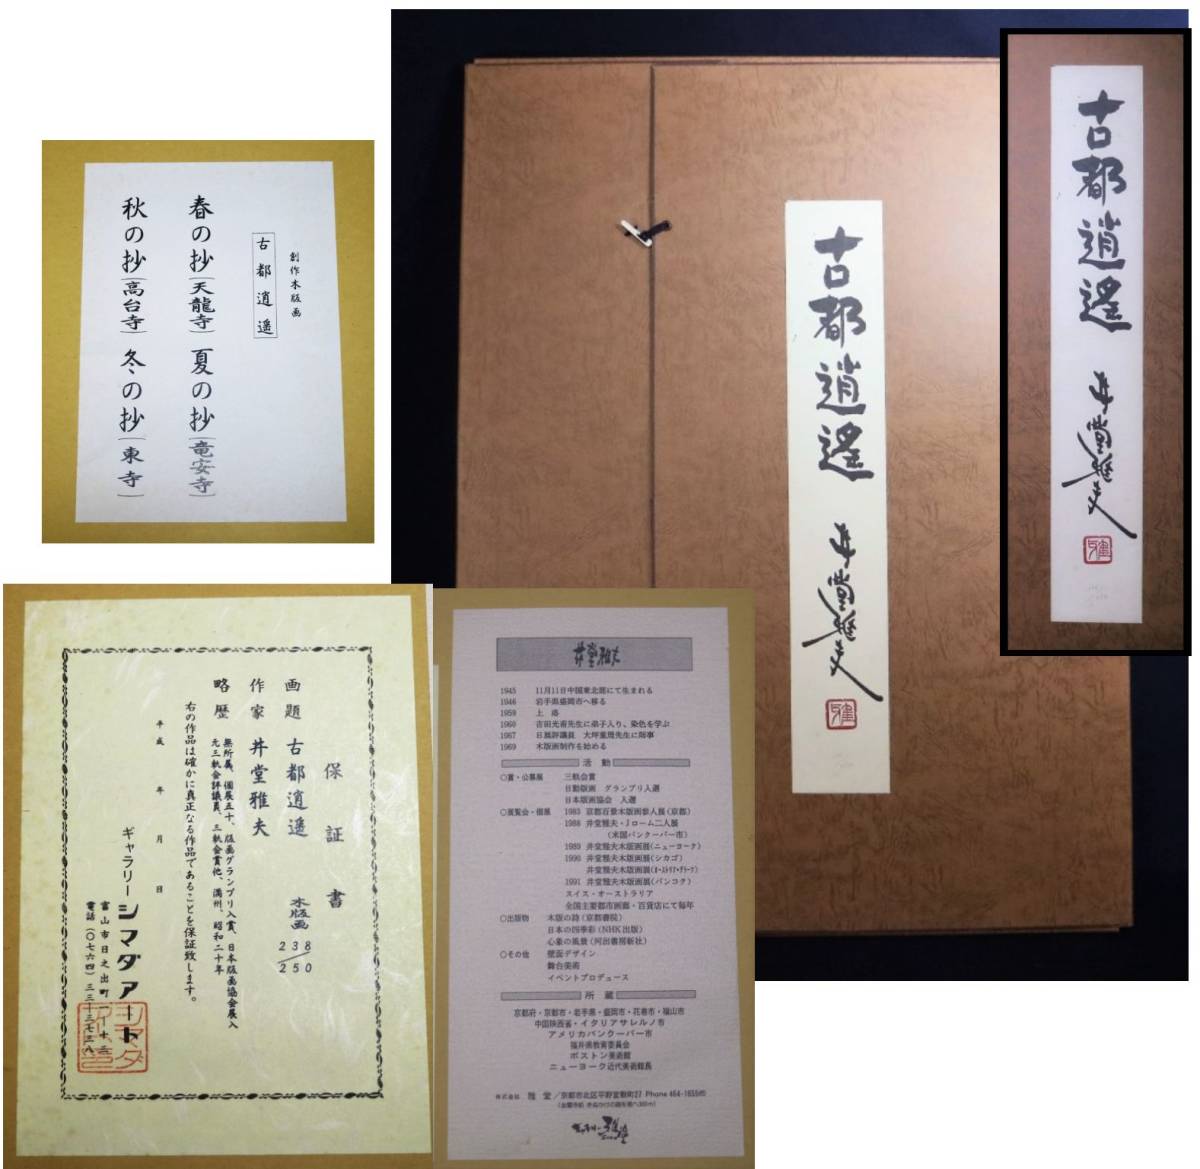 創作木版画
古都逍遥
春の抄(天龍寺) 夏の抄(竜安寺)
秋の抄(高台寺) 冬の抄(東寺)
古都逍遥
井堂雅夫
古都逍遥
井堂雅夫
保証書
画題 古都逍遥 木版画
238/250
作家 井堂雅夫
略歴 無所属、個展五十、版画グランプリ入賞、日本版画協会展入
元三軌会評議員、三軌会賞他、満州、昭和二十年
右の作品は確かに真正なる作品であることを保証致します。
平成 年 月 日
ギャラリーシマダアート
富山市日之出町一十三
電話(〇七六四)三三ー三七三八
井堂雅夫
1945 11月11日中国東北部にて生まれる
1946 岩手県盛岡市へ移る
1959 上洛
1960 吉田光甫先生に弟子入り、染色を学ぶ
1967 日展評議員 大坪重周先生に師事
1969 木版画制作を始める
活動
○賞・公募展 三軌会賞
日動版画 グランプリ入選
日本版画協会 入選
○展覧会・個展 1983 京都百景木版画参人展(京都)
1988 井堂雅夫・Jローム二人展
(米国バンクーバー市)
1989 井堂雅夫木版画展(ニューヨーク)
1990 井堂雅夫木版画展(シカゴ)
井堂雅夫木版画展(オーストリア・グラーツ)
1991 井堂雅夫木版画展(バンコク)
スイス・オーストラリア
全国主要都市画廊・百貨店にて毎年
○出版物 木版の詩(京都書院)
日本の四季彩(NHK出版)
心象の風景(河出書房新社)
○その他 壁面デザイン
舞台美術
イベントプロデュース
所蔵
京都府・京都市・岩手県・盛岡市・花巻市・福山市
中国陝西省・イタリアサレルノ市
アメリカバンクーバー市
福井県教育委員会
ボストン美術館
ニューヨーク近代美術館長
株式会社 雅堂/京都市北区平野宮敷町27 Phone 464-1655㈹